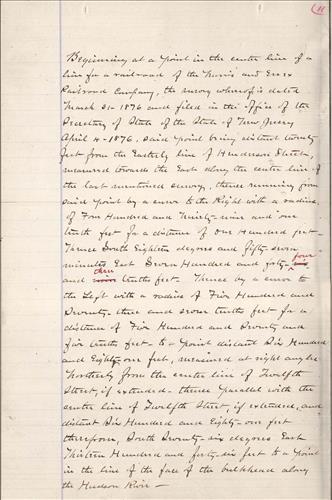 11
Beginning at a point in the center line of a
line for a railroad of the Morris and Essex
Railroad Company, the survey whereof is dated
March 31-1876 and filed in the office of the
Secretary of State of the State of New Jersey
April 4-1876, said point being distant twenty
feet from the Easterly line of Henderson Street,
measured towards the East along the center line of
the last mentioned survey, thence running from
said point by a curve to the Right with a radius
of Four Hundred and Ninety-nine and one
tenth feet for a distance of One Hundred feet-
Thence South Eighteen degrees and fifty seven
minutes East Seven Hundred and forty- four
and three tenths feet- Thence by a curve to
the Left with a radius of Five Hundred and
Seventy-three and seven tenths feet for a
distance of Five Hundred and Seventy and
five tenths feet- to a point distant Six Hundred
and Eighty-one feet, measured at right angles
Northerly from the center line of Twelfth
Street, if extended- thence parallel with the
center line of Twelfth Street, if extended, and
distant Six Hundred and Eighty-one feet
therefrom, South Seventy-six degrees East
Thirteen Hundred and forty-six feet to a point
in the line of the face of the bulkhead along
the Hudson River-